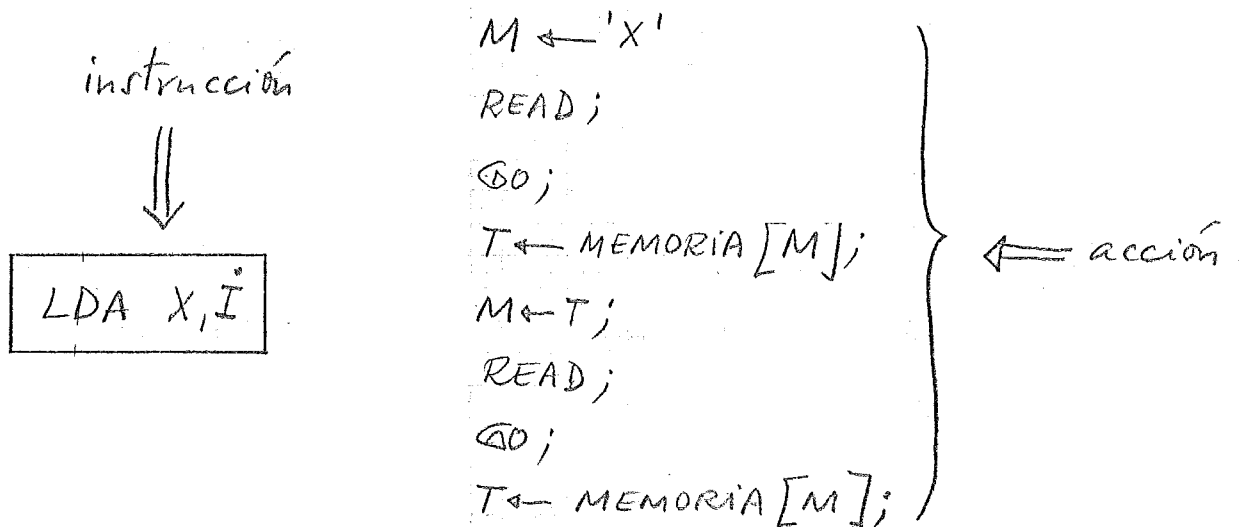 instrucción
LDA X,I
M ← 'X'
READ;
GO;
T ← MEMORIA [M];
M ← T;
READ;
GO;
T ← MEMORIA [M];
acción